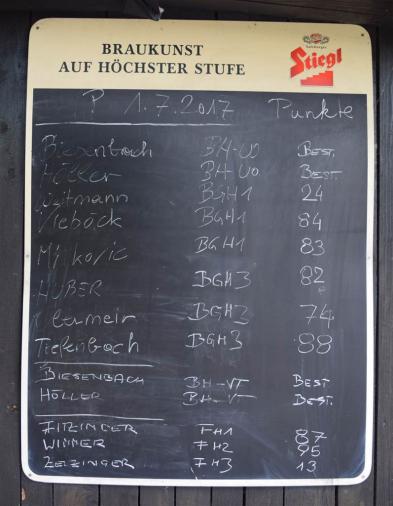 BRAUKUNST
AUF HÖCHSTER STUFE
Salzburger
Stiegl
P 1.7.2017 Punkte
Biesenbach BH-VO BEST.
Höller BH-VO BEST.
BGH1 24
Viebäck BGH1 84
BGH1 83
HUBER BGH3 82
BGH3 74
Tiefenbach BGH3 88
BIESENBACH BH-VT BEST
HÖLLER BH-VT BEST.
FITZINGER FH1 87
WIMMER FH2 95
ZELZINGER FH3 13